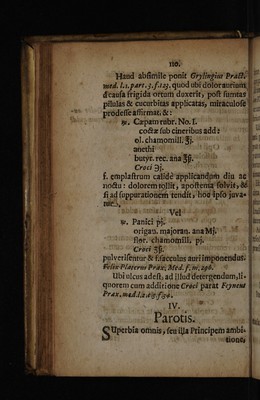 110.
Haud absimile ponit Grylingius Pract.
med. l.1. part. 3. f. 123. quod ubi dolor aurium
à causa frigida ortum duxerit, post sumtas
pilulas & cucurbitas applicatas, miraculose
prodesse affirmat, & :
℞. Cæpam rubr. No. I.
coctæ sub cineribus add:
ol. chamomill. ℥j.
anethi
butyr. rec. ana ℥ß.
Croci ℈j.
f. emplastrum calidè applicandum diu ac
noctu: dolorem tollit, apostema solvit, &
si ad suppurationem tendit, hoc ipso juva-
tur.
Vel
℞. Panici pj.
origan. majoran. ana Mj.
flor. chamomill. pj.
Croci ℥ß.
pulverisentur & fit sacculus auri imponendus.
Felix Platerus Prax. Med. f. m. 298.
Ubi ulcus adest, ad illud detergendum, li-
quorem cum additione Croci parat Feynens
Prax. med. l. 2.
IV.
Parotis.
SUperbia omnis, seu illa Principem ambi-
tione,